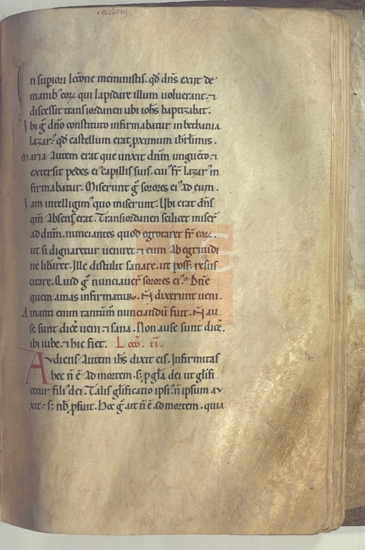 n supiori lectione meministis. qd dns exiit de
manib; eoru qui lapidare illum voluerant. et
discessit trans iordanen ubi iohs baptizabat.
Ibi g dno constituto infirmabatur in bethania
lazar; qd castellum erat pximum ihrlimis.
Maria autem erat que unxit dnm unguento. et
extersit pedes ei capillis suis. cui fr lazar in
firmabatur. Miserunt g sorores ei ad eum.
Iam intelligim; quo miserunt. Ubi erat dns
qm absens erat. Trans iordanen scilicet miser
ad dnm. nunciantes quod egrotaret fr earu.
ut si dignaretur venire. et eum ab egritudi
ne liberet. Ille distulit sanare. ut posset resus
citare. Quid g nunciaver sorores ei. Dne
quem amas infirmatur. N dixerunt veni.
Amanti enim tantum nunciandu fuit. N au
se sunt dice veni et sana. Non ause sunt dice.
ibi iube. et hic fiet. Lectio II.
Audiens autem ihs dixit eis. Infirmitas
hec n e ad mortem. s; p gla dei ut glifi
cetur fili dei. Talis glificatio ipsi n ipsum au
xit. s; nob pfuit. Hoc g ait n e ad mortem. quia